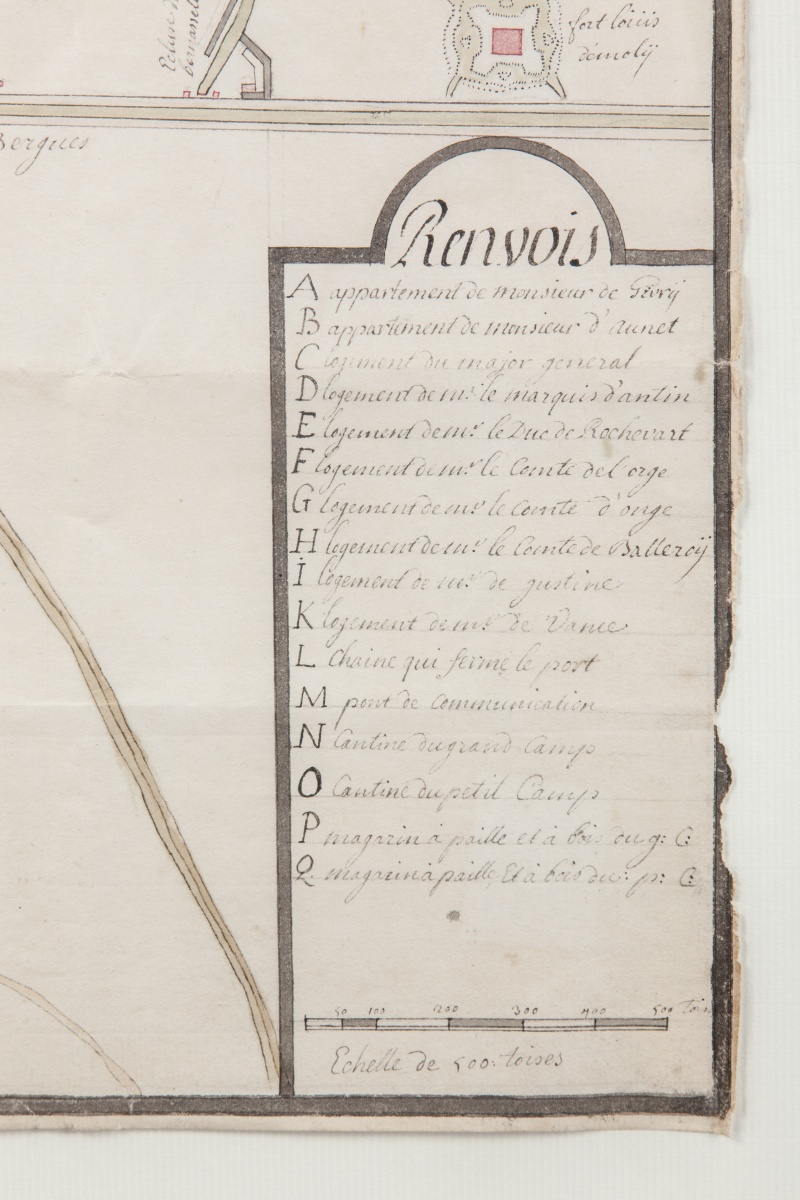 Ecluse de
bernardes
fort loüis
démolÿ
Bergues
Renvois
A appartement de monsieur de Givrÿ
B appartement de monsieur d'aunet
C logement du major general
D logement de mr. le marquis d'antin
E logement de mr. le Duc de Rochevart
F logement de mr. le Comte de l'orge
G logement de mr. le Comte d'onge
H logement de mr. le Comte de Balleroÿ
I logement de mr. de gustine
K logement de mr. de Vance
L Chaine qui ferme le port
M pont de communication
N Cantine du grand Camp
O Cantine du petit Camp
P magazin à paille et à bois du g: C:
Q magazin à paille Et à bois du: p: C:
50 100 200 300 400 500 tois
Echelle de 500: toises